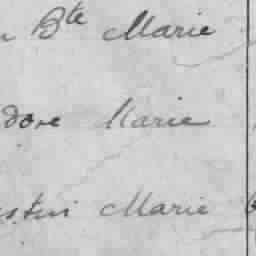 Bte Marie
dore Marie
Marie